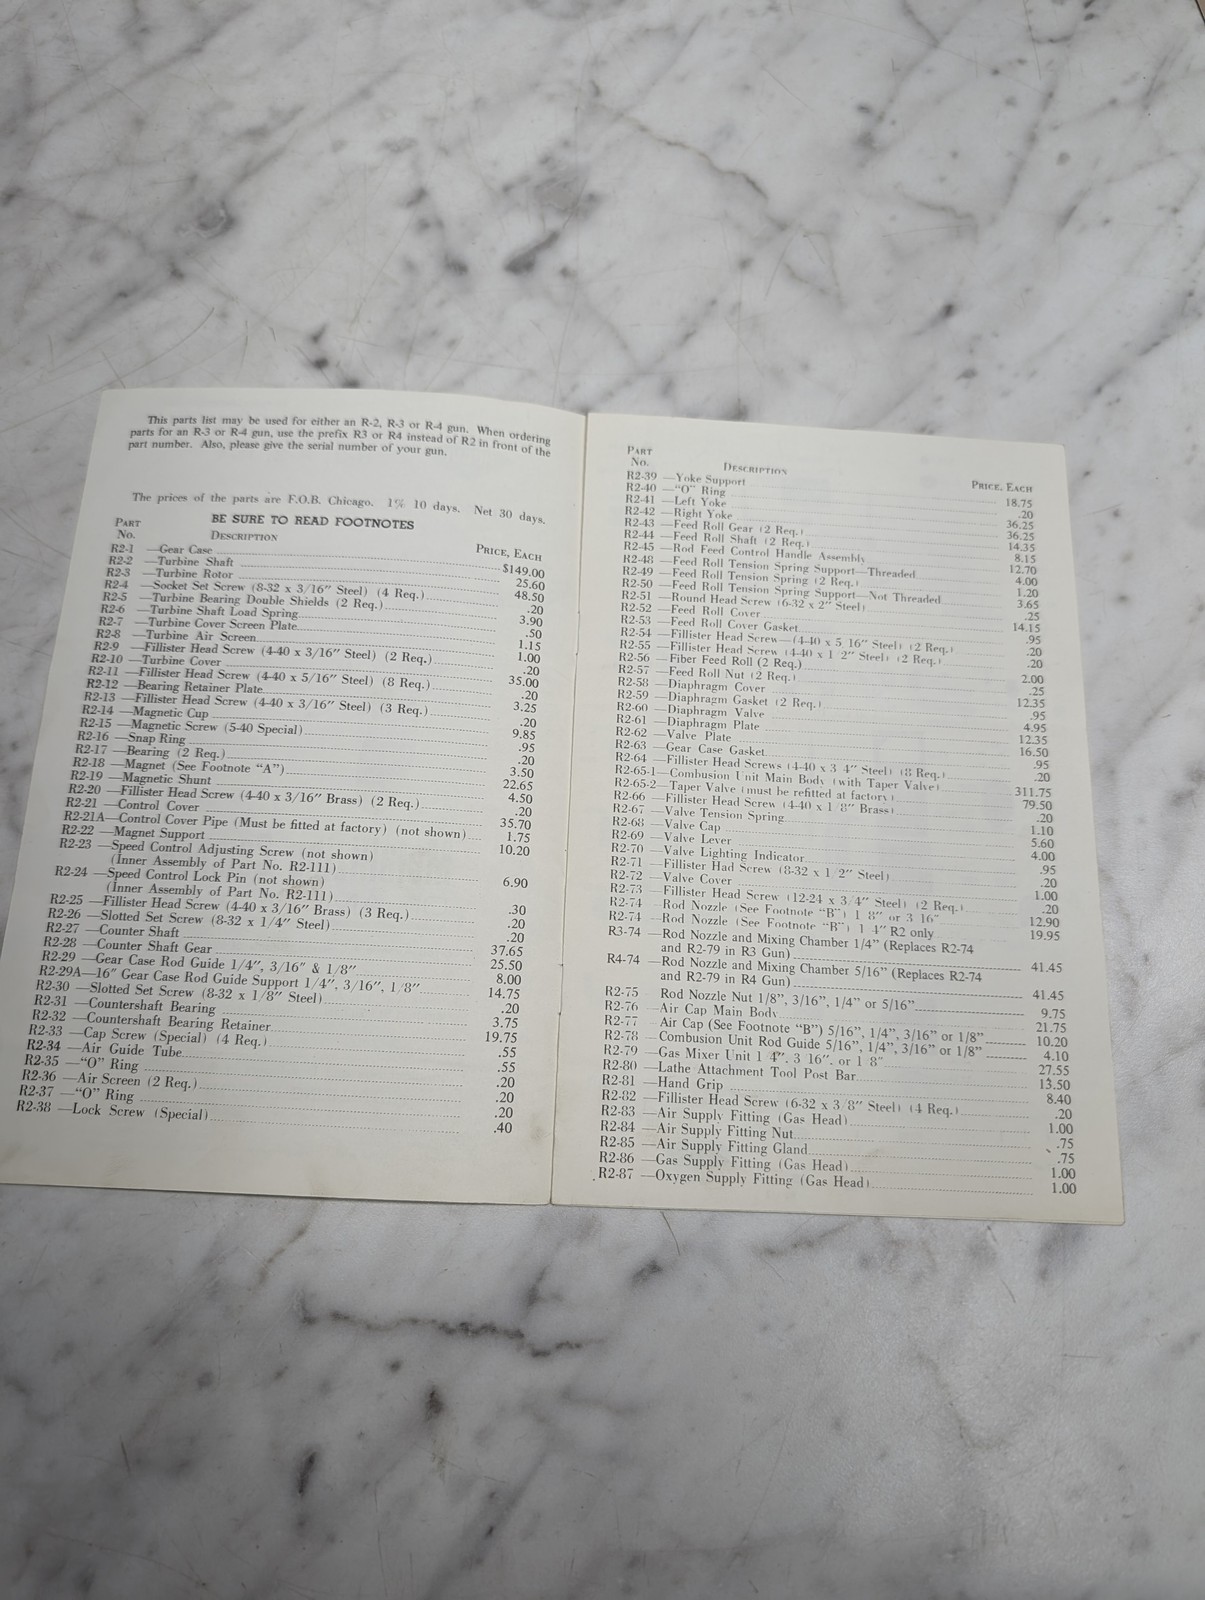 This parts list may be used for either an R-2, R-3 or R-4 gun. When ordering
parts for an R-3 or R-4 gun, use the prefix R3 or R4 instead of R2 in front of the
part number. Also, please give the serial number of your gun.
The prices of the parts are F.O.B. Chicago. 1% 10 days. Net 30 days.
BE SURE TO READ FOOTNOTES
PART No. DESCRIPTION PRICE, EACH
R2-1 —Gear Case $149.00
R2-2 —Turbine Shaft 25.60
R2-3 —Turbine Rotor 48.50
R2-4 —Socket Set Screw (8-32 x 3/16" Steel) (4 Req.) .20
R2-5 —Turbine Bearing Double Shields (2 Req.) 3.90
R2-6 —Turbine Shaft Load Spring .50
R2-7 —Turbine Cover Screen Plate 1.15
R2-8 —Turbine Air Screen 1.00
R2-9 —Fillister Head Screw (4-40 x 3/16" Steel) (2 Req.) .20
R2-10 —Turbine Cover 35.00
R2-11 —Fillister Head Screw (4-40 x 5/16" Steel) (8 Req.) .20
R2-12 —Bearing Retainer Plate 3.25
R2-13 —Fillister Head Screw (4-40 x 3/16" Steel) (3 Req.) .20
R2-14 —Magnetic Cup 9.85
R2-15 —Magnetic Screw (5-40 Special) .95
R2-16 —Snap Ring .20
R2-17 —Bearing (2 Req.) 3.50
R2-18 —Magnet (See Footnote "A") 22.65
R2-19 —Magnetic Shunt 4.50
R2-20 —Fillister Head Screw (4-40 x 3/16" Brass) (2 Req.) .20
R2-21 —Control Cover 35.70
R2-21A—Control Cover Pipe (Must be fitted at factory) (not shown) 1.75
R2-22 —Magnet Support 10.20
R2-23 —Speed Control Adjusting Screw (not shown)
(Inner Assembly of Part No. R2-111) 6.90
R2-24 —Speed Control Lock Pin (not shown)
(Inner Assembly of Part No. R2-111) .30
R2-25 —Fillister Head Screw (4-40 x 3/16" Brass) (3 Req.) .20
R2-26 —Slotted Set Screw (8-32 x 1/4" Steel) .20
R2-27 —Counter Shaft 37.65
R2-28 —Counter Shaft Gear 25.50
R2-29 —Gear Case Rod Guide 1/4", 3/16" & 1/8" 8.00
R2-29A—16" Gear Case Rod Guide Support 1/4", 3/16", 1/8" 14.75
R2-30 —Slotted Set Screw (8-32 x 1/8" Steel) .20
R2-31 —Countershaft Bearing 3.75
R2-32 —Countershaft Bearing Retainer 19.75
R2-33 —Cap Screw (Special) (4 Req.) .55
R2-34 —Air Guide Tube .55
R2-35 —"O" Ring .20
R2-36 —Air Screen (2 Req.) .20
R2-37 —"O" Ring .20
R2-38 —Lock Screw (Special) .40
PART No. DESCRIPTION PRICE, EACH
R2-39 —Yoke Support 18.75
R2-40 —"O" Ring .20
R2-41 —Left Yoke 36.25
R2-42 —Right Yoke 36.25
R2-43 —Feed Roll Gear (2 Req.) 14.35
R2-44 —Feed Roll Shaft (2 Req.) 8.15
R2-45 —Rod Feed Control Handle Assembly 12.70
R2-48 —Feed Roll Tension Spring Support—Threaded 4.00
R2-49 —Feed Roll Tension Spring (2 Req.) 1.20
R2-50 —Feed Roll Tension Spring Support—Not Threaded 3.65
R2-51 —Round Head Screw (6-32 x 2" Steel) .25
R2-52 —Feed Roll Cover 14.15
R2-53 —Feed Roll Cover Gasket .95
R2-54 —Fillister Head Screw—(4-40 x 5/16" Steel) (2 Req.) .20
R2-55 —Fillister Head Screw (4-40 x 1/2" Steel) (2 Req.) .20
R2-56 —Fiber Feed Roll (2 Req.) 2.00
R2-57 —Feed Roll Nut (2 Req.) .25
R2-58 —Diaphragm Cover 12.35
R2-59 —Diaphragm Gasket (2 Req.) .95
R2-60 —Diaphragm Valve 4.95
R2-61 —Diaphragm Plate 12.35
R2-62 —Valve Plate 16.50
R2-63 —Gear Case Gasket .95
R2-64 —Fillister Head Screws (4-40 x 3/4" Steel) (8 Req.) .20
R2-65-1—Combusion Unit Main Body (with Taper Valve) 311.75
R2-65-2—Taper Valve (must be refitted at factory) 79.50
R2-66 —Fillister Head Screw (4-40 x 1/8" Brass) .20
R2-67 —Valve Tension Spring 1.10
R2-68 —Valve Cap 5.60
R2-69 —Valve Lever 4.00
R2-70 —Valve Lighting Indicator .95
R2-71 —Fillister Had Screw (8-32 x 1/2" Steel) .20
R2-72 —Valve Cover 1.00
R2-73 —Fillister Head Screw (12-24 x 3/4" Steel) (2 Req.) .20
R2-74 —Rod Nozzle (See Footnote "B") 1/8" or 3/16" 12.90
R2-74 —Rod Nozzle (See Footnote "B") 1/4" R2 only 19.95
R3-74 —Rod Nozzle and Mixing Chamber 1/4" (Replaces R2-74
and R2-79 in R3 Gun) 41.45
R4-74 —Rod Nozzle and Mixing Chamber 5/16" (Replaces R2-74
and R2-79 in R4 Gun) 41.45
R2-75 Rod Nozzle Nut 1/8", 3/16", 1/4" or 5/16" 9.75
R2-76 —Air Cap Main Body 21.75
R2-77 Air Cap (See Footnote "B") 5/16", 1/4", 3/16" or 1/8" 10.20
R2-78 —Combusion Unit Rod Guide 5/16", 1/4", 3/16" or 1/8" 4.10
R2-79 —Gas Mixer Unit 1/4", 3/16", or 1/8" 27.55
R2-80 —Lathe Attachment Tool Post Bar 13.50
R2-81 —Hand Grip 8.40
R2-82 —Fillister Head Screw (6-32 x 3/8" Steel) (4 Req.) .20
R2-83 —Air Supply Fitting (Gas Head) 1.00
R2-84 —Air Supply Fitting Nut .75
R2-85 —Air Supply Fitting Gland .75
R2-86 —Gas Supply Fitting (Gas Head) 1.00
R2-87 —Oxygen Supply Fitting (Gas Head) 1.00